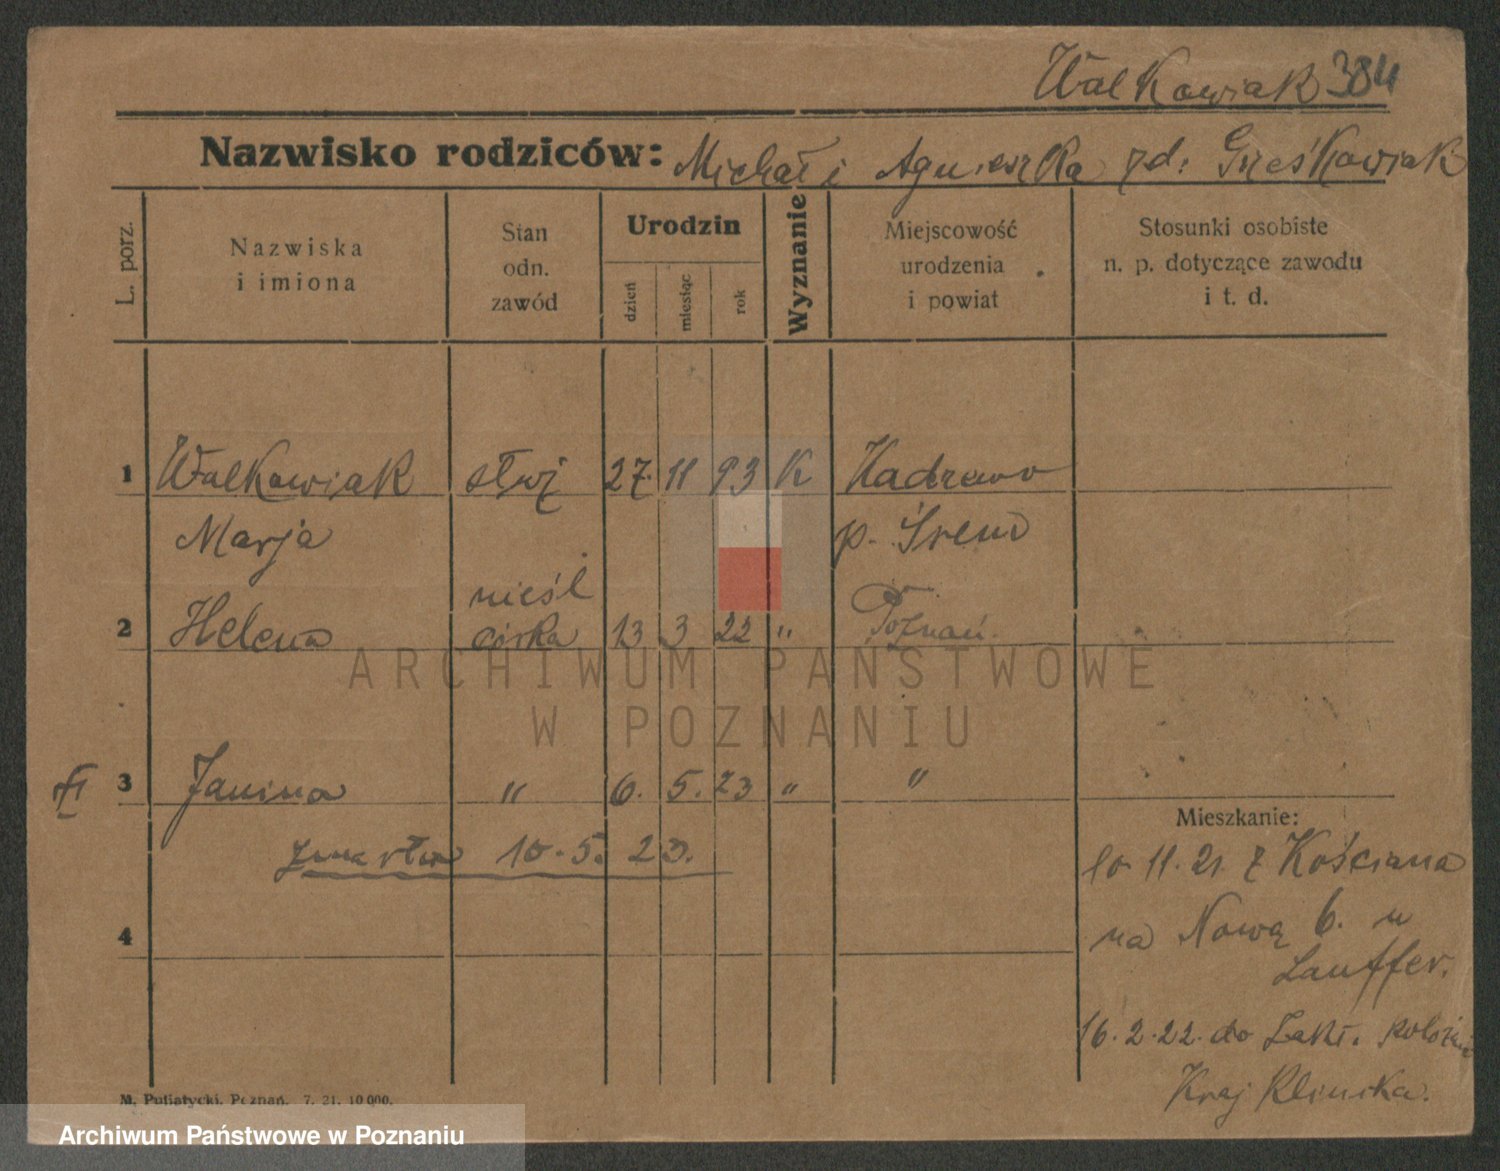 Walkowiak 384
Nazwisko rodziców: Michał i Agnieszka zd: Grześkowiak
L. porz.
Nazwiska
i imiona
Stan
odn.
zawód
Urodzin
dzień
miesiąc
rok
Wyznanie
Miejscowość
urodzenia
i powiat
Stosunki osobiste
n. p. dotyczące zawodu
i t. d.
1 Walkowiak służ 27. 11 93 K Kadzewo
Marja p. Śrem
nieśl
2 Helena córka 13 3 22 " Poznań.
3 Janina " 6. 5. 23 " "
zmarła 10.5. 23.
4
Mieszkanie:
10. 11. 21. z Kościana
na Nową 6. u
Lauffer.
16. 2. 22. do Zakł. położni
Kraj Klinika.
M. Putiatycki, Poznań. 7. 21. 10 000.
ARCHIWUM PAŃSTWOWE
W POZNANIU
Archiwum Państwowe w Poznaniu